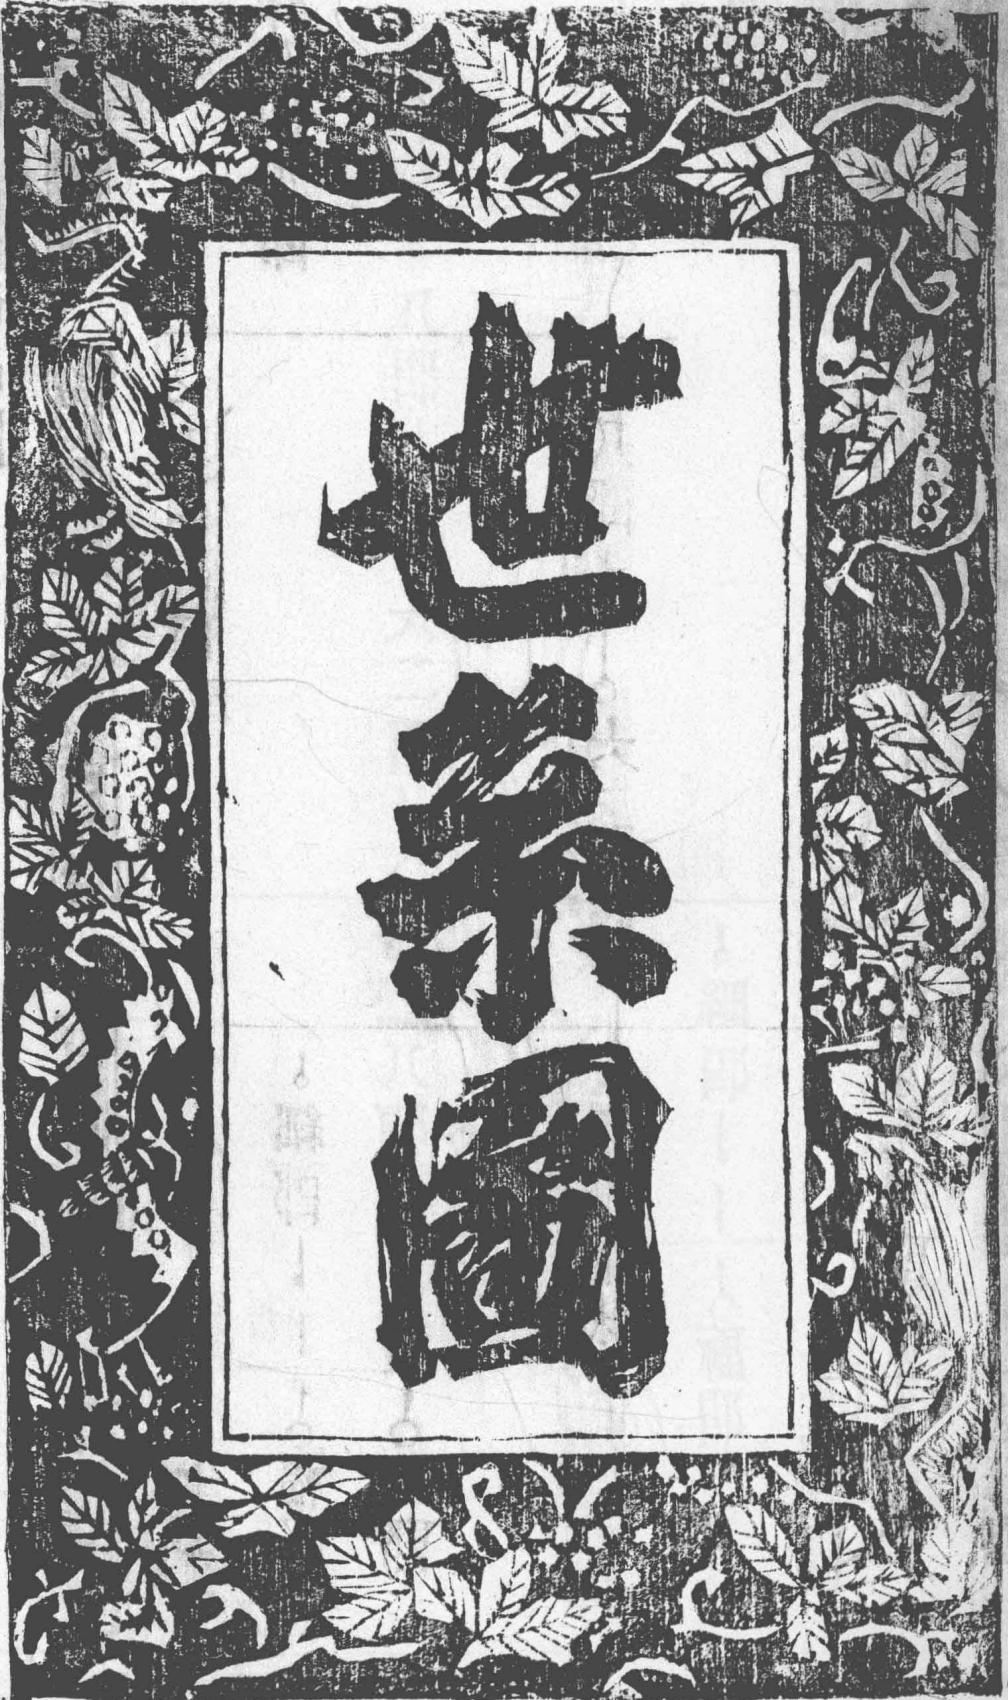 世系圖